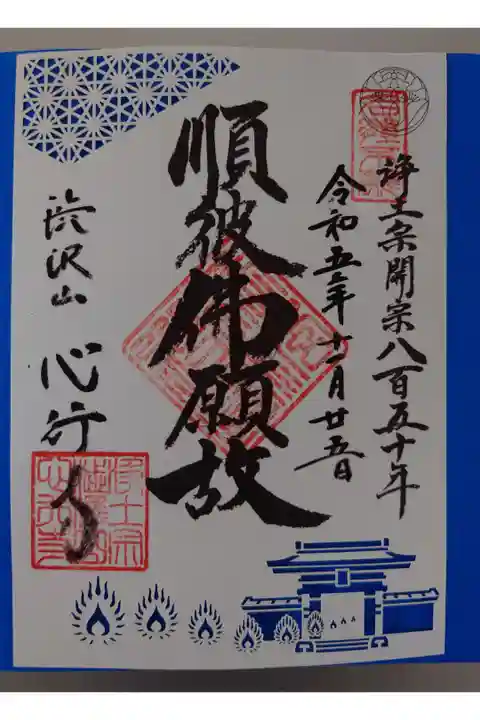 浄土宗開宗八百五十年
令和五年十一月廿五日
順彼佛願故
渋沢山 心行寺